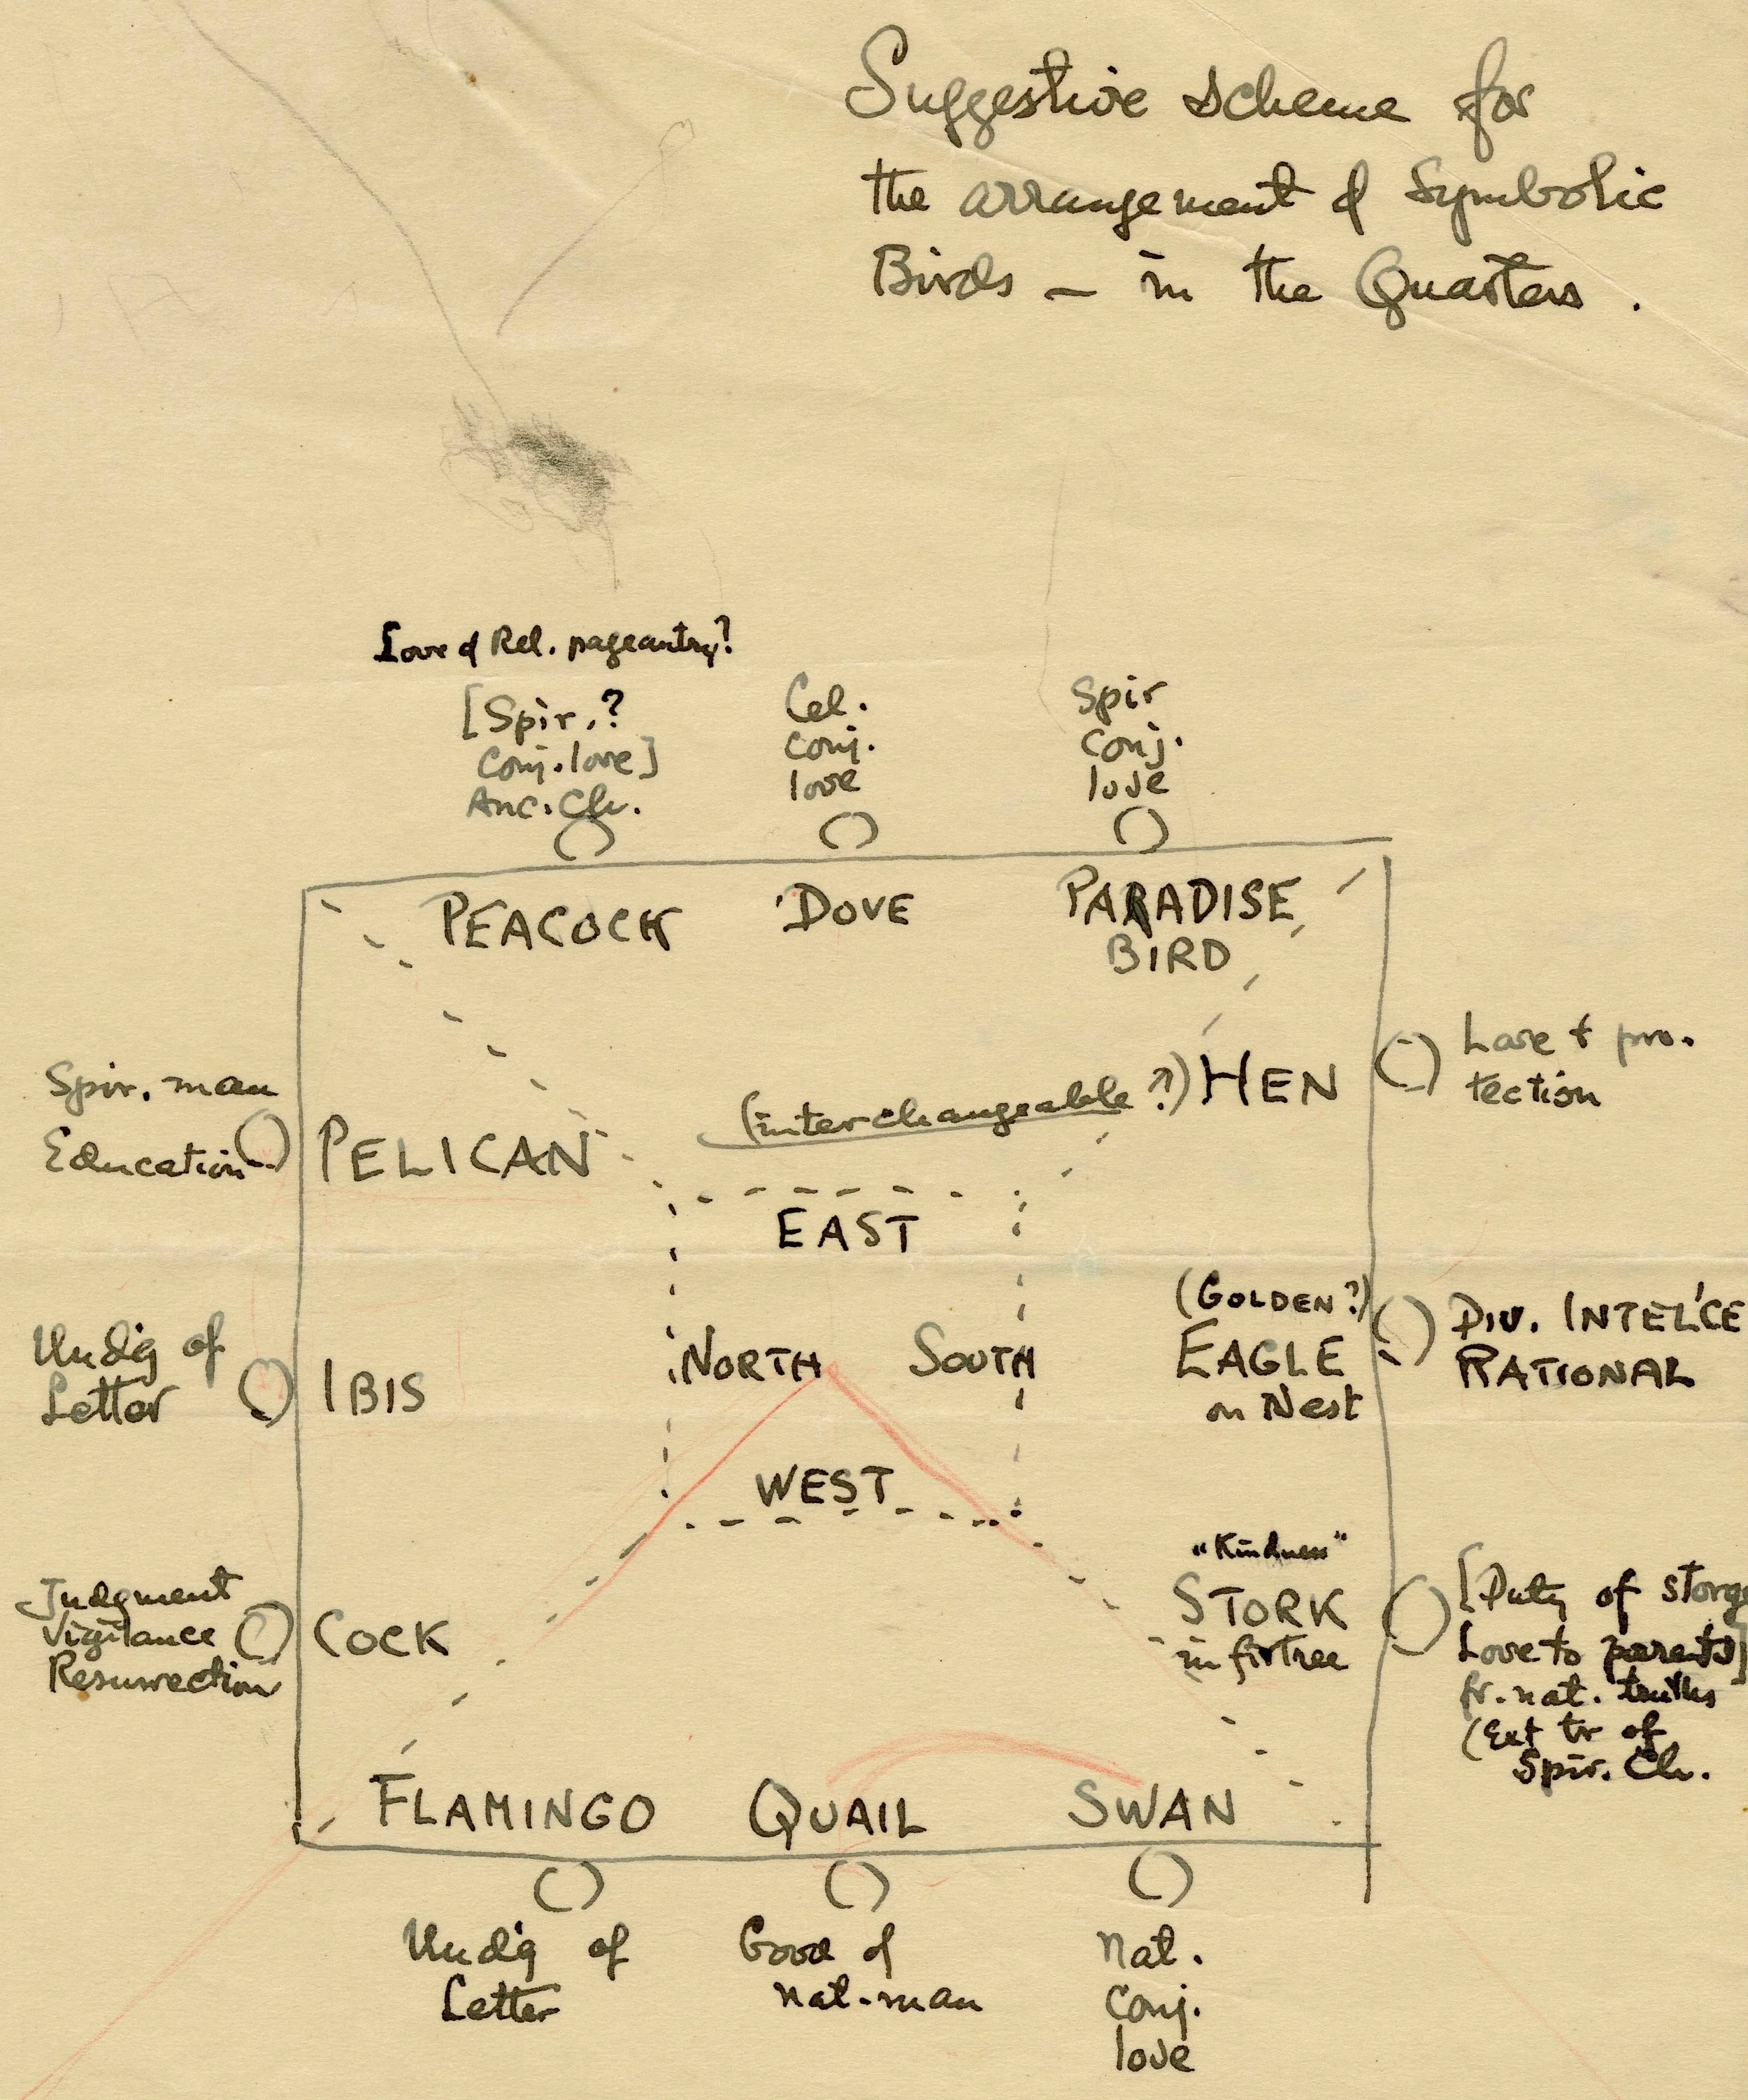 Suggestive scheme for
the arrangement of Symbolic
Birds – in the Quarters.
Love of Rel. pageantry?
[Spir.?
Conj. love]
Anc. Ch.
Cel.
conj.
love
Spir
conj.
love
PEACOCK
DOVE
PARADISE
BIRD
Spir. man
Education
PELICAN
(interchangeable?)
HEN
tection
EAST
Undg of
Letter
IBIS
NORTH
SOUTH
(GOLDEN?)
EAGLE
on Nest
DIV. INTEL'CE
RATIONAL
WEST
Judgment
Vigilance
Resurrection
COCK
"Kindness"
STORK
in firtree
[Duty of storge
Love to parents]
fr. nat. truths
(Ext tr of
Spir. Ch.
FLAMINGO
QUAIL
SWAN
Undg of
Letter
Good of
nat. man
Nat.
conj.
love